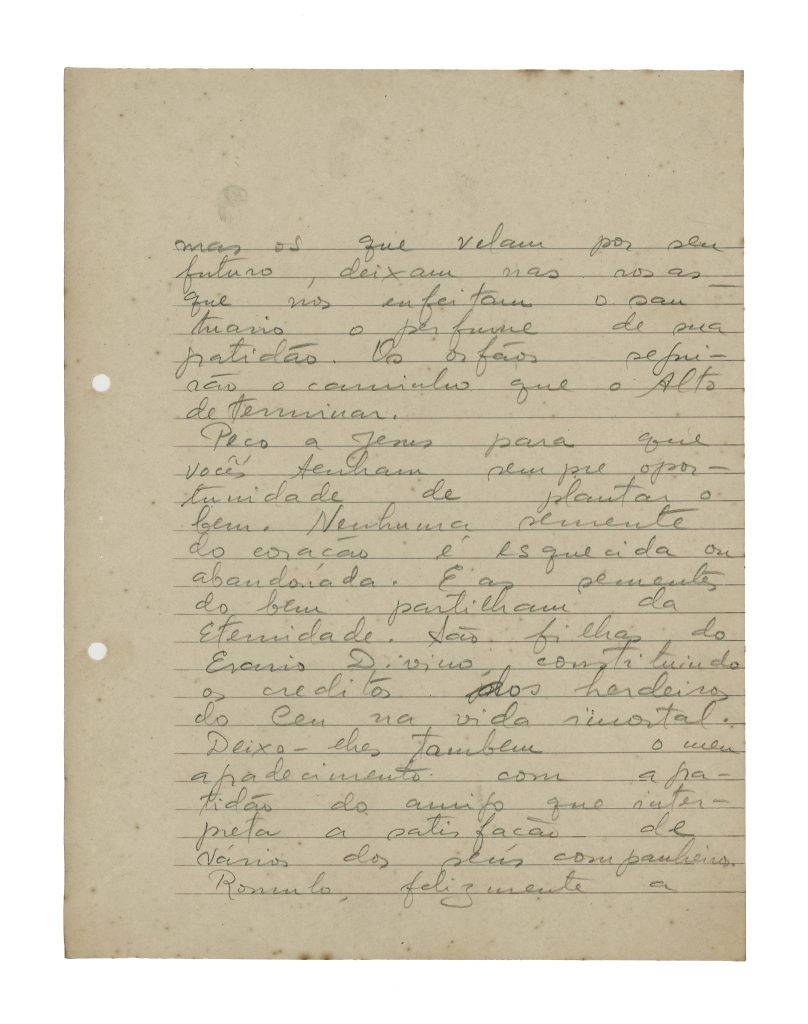 mas os que velam por seu
futuro, deixam nas rosas
que nos enfeitam o san-
tuario o perfume de sua
gratidão. Os orfãos segui-
rão o caminho que o Alto
determinar.
Peço a Jesus para que
vocês tenham sempre opor-
tunidade de plantar o
bem. Nenhuma semente
do coração é esquecida ou
abandonada. E as sementes
do bem partilham da
Eternidade. São filhas do
Erario Divino, constituindo
os creditos dos herdeiros
do Ceu na vida imortal.
Deixo-lhes tambem o meu
agradecimento com a gra-
tidão do amigo que inter-
preta a satisfação de
vários dos seus companheiros.
Romulo, felizmente a